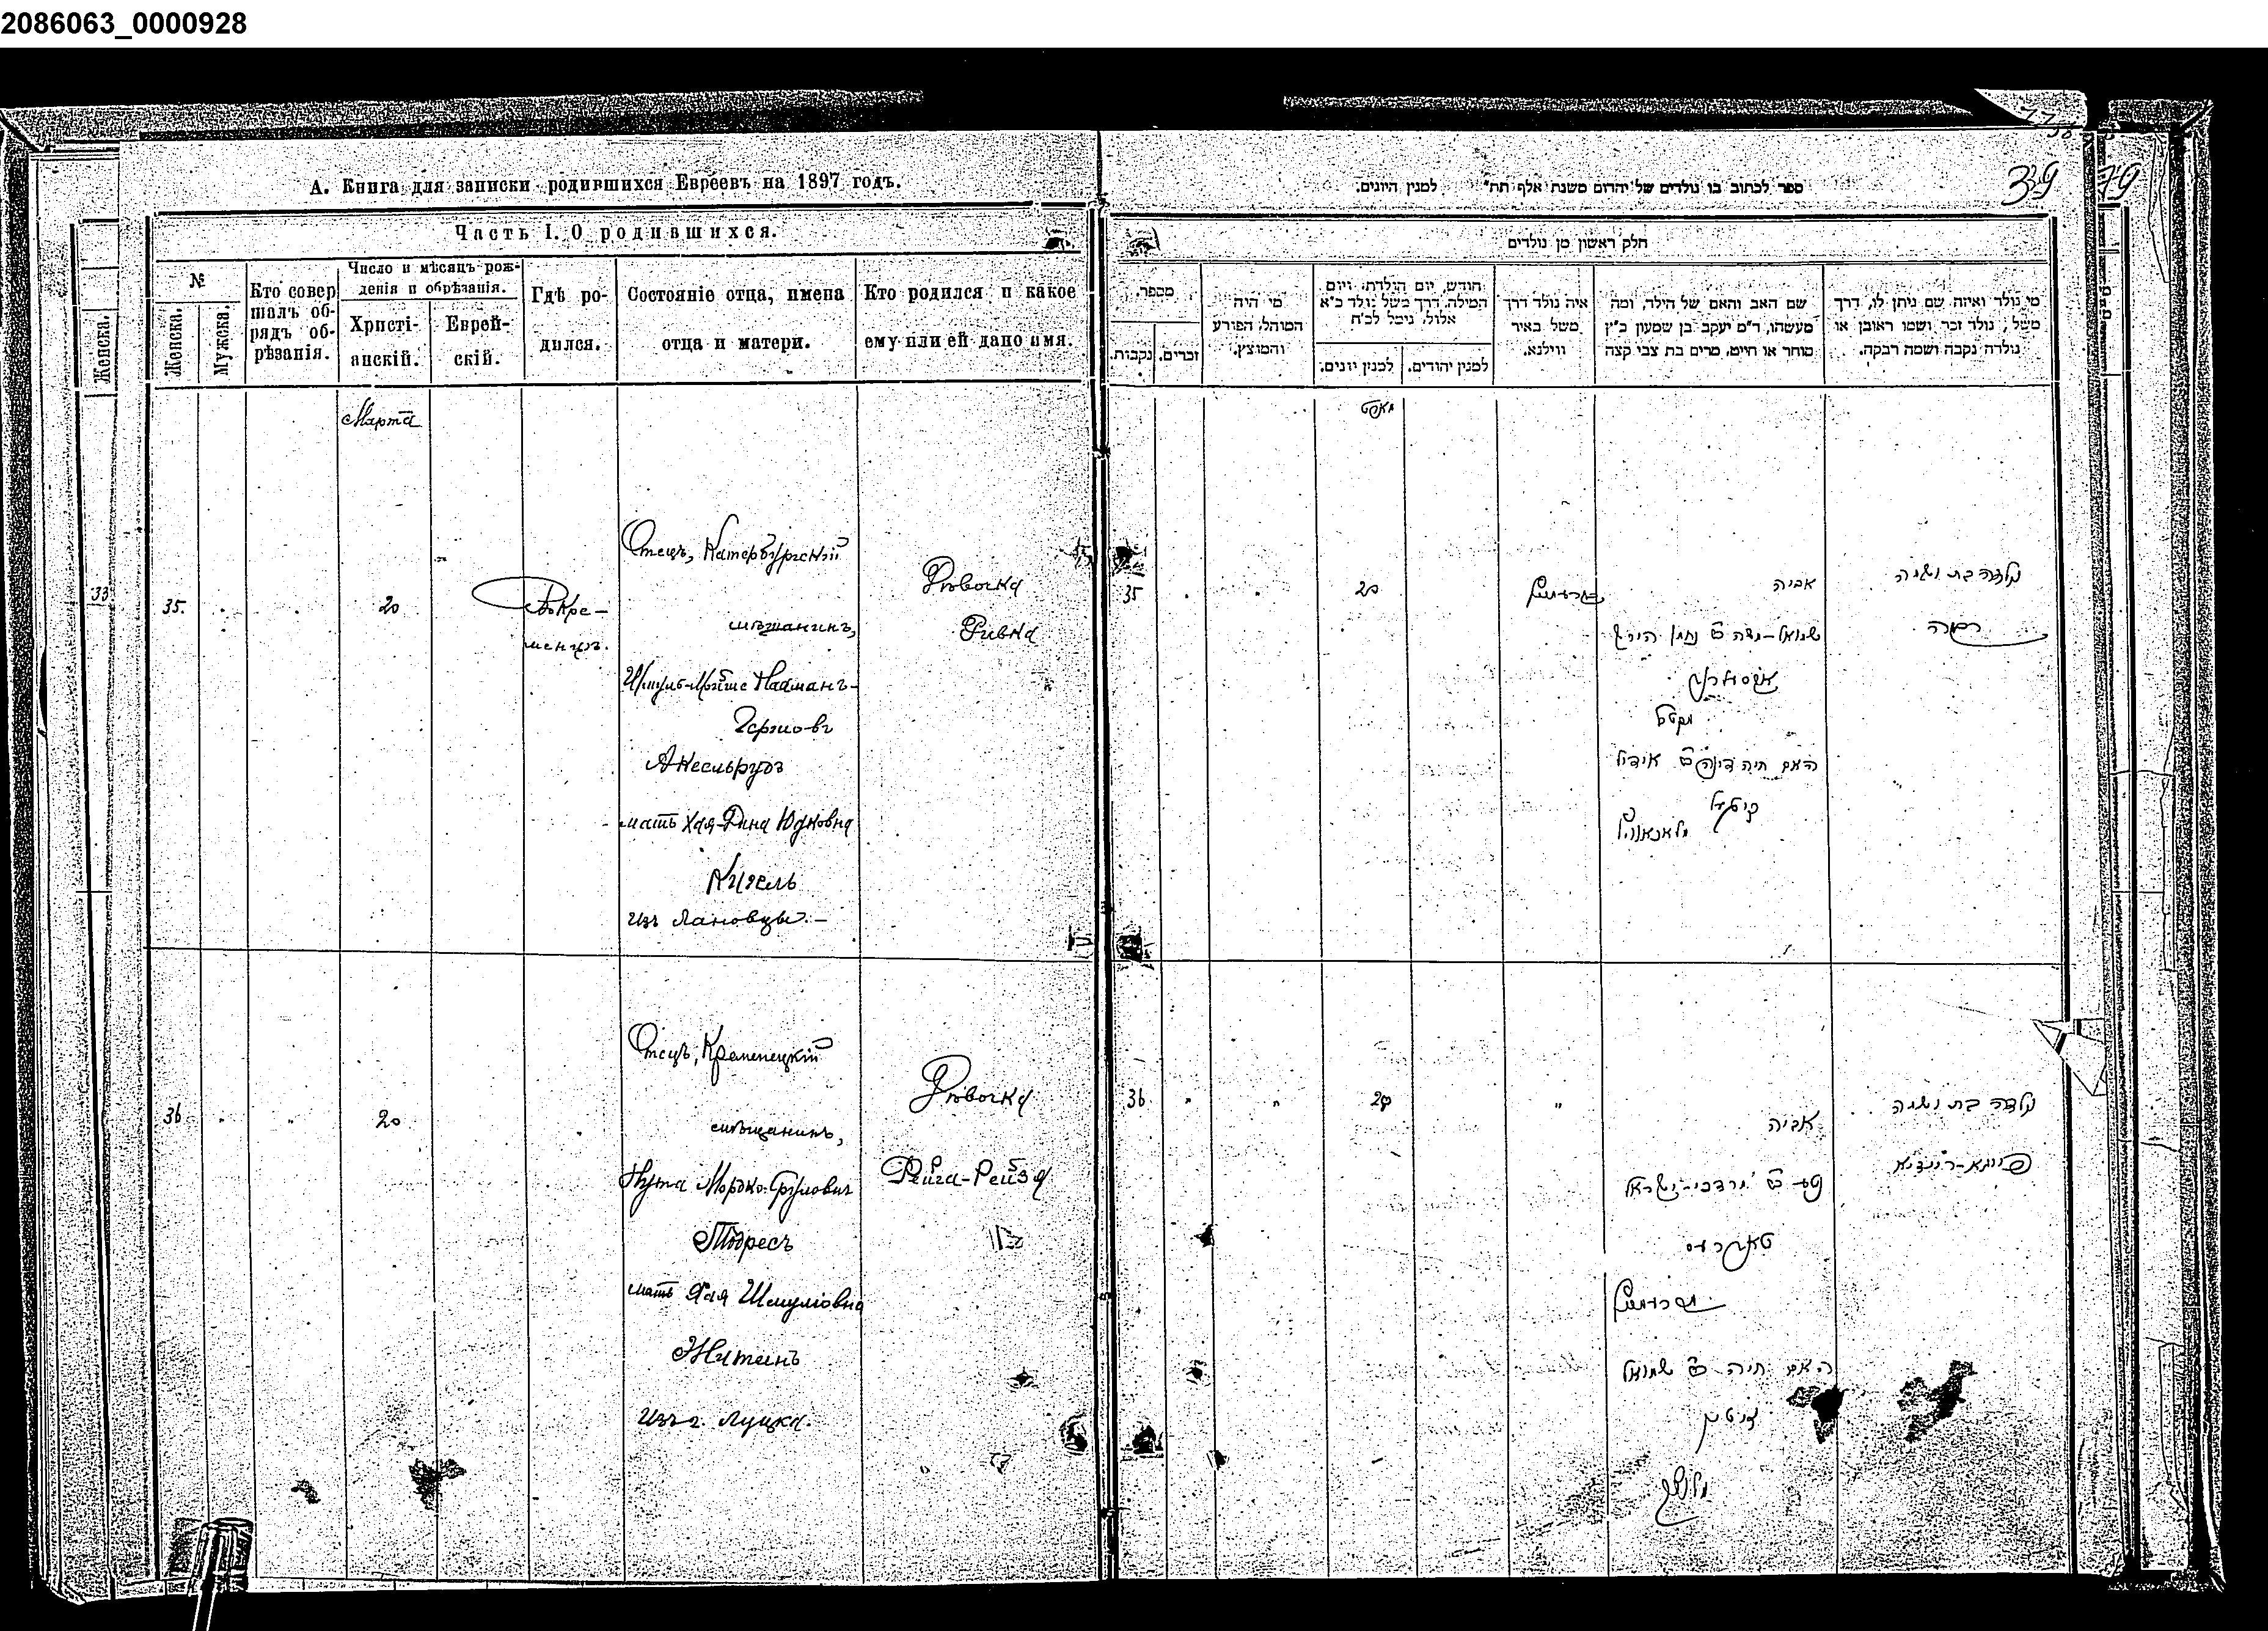 2086063_0000928
39
А. Книга для записки родившихся Евреевъ на 1897 годъ.
Часть I. О родившихся.
№
Женска.
Мужска.
Кто совер
шалъ об-
рядъ об-
рѣзанія.
Число и мѣсяцъ рож-
денія и обрѣзанія.
Христі-
анскій.
Еврей-
скій.
Гдѣ ро-
дился.
Состояніе отца, имена
отца и матери.
Кто родился и какое
ему или ей дано имя.
Женска.
33
Марта
35.
20
Вокре-
менцѣ.
Отецъ, Катербургскій
мѣщанинъ,
Шмуль-Мойше Нахманъ-
Гершовъ
Аксельрудъ
мать Хая-Дина Юдковна
Кизель
изъ Лановцы.-
Дѣвочка
Ривка
36
20
Отецъ, Кременецкій
мѣщанинъ,
Нута Мордко-Сруловичъ
Тодресъ
мать Хая Шмулiовна
Житинъ
Изъ г. Луцка.
Дѣвочка
Фейга-Рейзя
ספר לכתוב בו נולדים של יהדום משנת אלף תת״ למנין היונים.
חלק ראשון מן נולדים
מספר.
נקבות.
זכרים.
מי היה
המוהל, הפורע
והמוצץ.
חודש, יום הולדת, ויום
המילה, דרך משל נולד כ״א
אלול, נימל לכ״ח
למנין יונים.
למנין יהודים.
איה נולד דרך
משל באיר
ווילנא.
שם האב והאם של הילד, ומה
מעשהו, ד״מ יעקב בן שמעון כ״ץ
סוחר או חייט, מרים בת צבי קצה
מי נולד ואיזה שם ניתן לו, דרך
משל, נולד זכר ושמו ראובן או
נולדה נקבה ושמה רבקה.
מארט
35
20
אביה
שמואל-משה ב״ר נחמן הירש
אקסולרוט
האם חיה דינה ב״ר אידיל
קיזעל
נולדה בת ושמה
רבקה
36
20
אביה
נטע ב״ר מרדכי-ישראל
טאדרעס
האם חיה ב״ר שמואל
זיטין
נולדה בת ושמה
פייגא-רייזיא